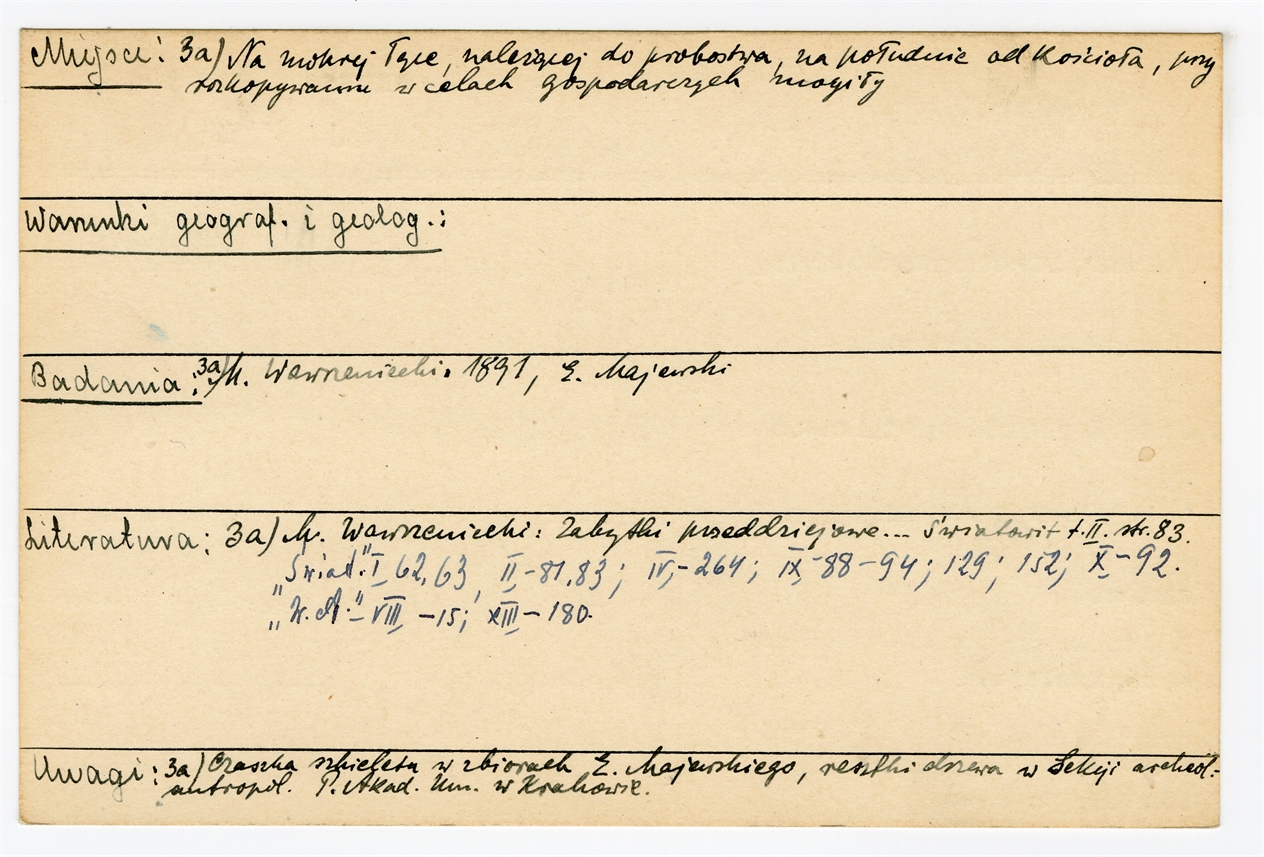 Miejsce: 3a) Na mokrej łące, należącej do probostwa, na południe od Kościoła, przy
rozkopywaniu w celach gospodarczych mogiły
Warunki geograf. i geolog.:
Badania: 3a) M. Wawrzeniecki. 1891, E. Majewski
Literatura: 3a) M. Wawrzeniecki: Zabytki przeddziejowe... Światowit t. II. str. 83.
"Świat." I, 62, 63, II,-81,83; IV,-264; IX,-88-94; 129; 152; X,-92.
"W. A." - VIII, -15; XIII,-180.
Uwagi: 3a) Czaszka szkieletu w zbiorach E. Majewskiego, resztki drzewa w Sekcji archeol.-
antropol. P. Akad. Um. w Krakowie.